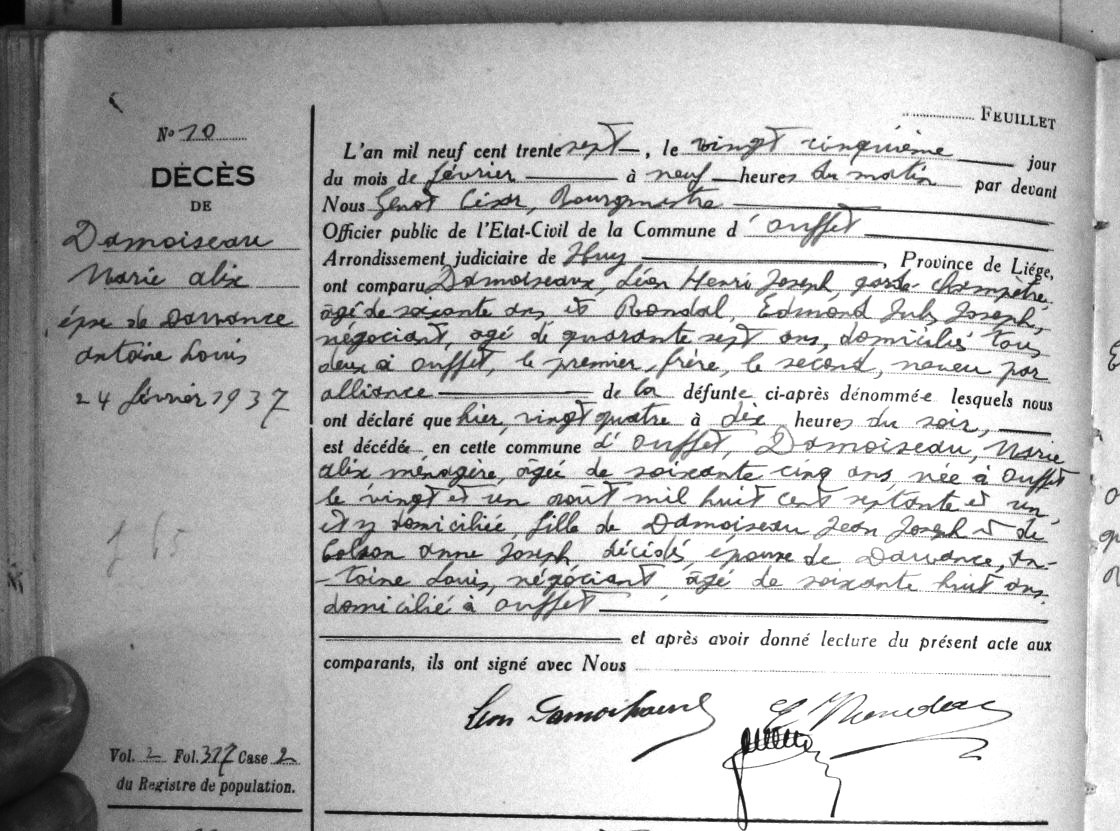 FEUILLET
N° 10
DÉCÈS
DE
Damoiseau
Marie Alix
épse de Darrance
Antoine Louis
24 février 1937
L'an mil neuf cent trente sept, le vingt cinquième jour
du mois de février à neuf heures du matin par devant
Nous Genot César, Bourgmestre
Officier public de l'Etat-Civil de la Commune d'Ouffet
Arrondissement judiciaire de Huy, Province de Liége,
ont comparu Damoiseaux, Léon Henri Joseph, garde champêtre,
âgé de soixante ans et Rondal, Edmond Jules Joseph,
négociant, âgé de quarante sept ans, domiciliés tous
deux à Ouffet, le premier frère, le second, neveu par
alliance de la défunte ci-après dénommée lesquels nous
ont déclaré que hier, vingt quatre à dix heures du soir,
est décédée en cette commune d'Ouffet, Damoiseau, Marie
Alix ménagère, âgée de soixante cinq ans née à Ouffet
le vingt et un août mil huit cent septante et un,
et y domiciliée, fille de Damoiseau Jean Joseph et de
Colson Anne Joseph, décédés épouse de Darrance, An-
toine Louis, négociant, âgé de soixante huit ans,
domicilié à Ouffet
et après avoir donné lecture du présent acte aux
comparants, ils ont signé avec Nous
Léon Damoiseaux E. Rondal
f 65
Vol. 2 Fol. 317 Case 2
du Registre de population.